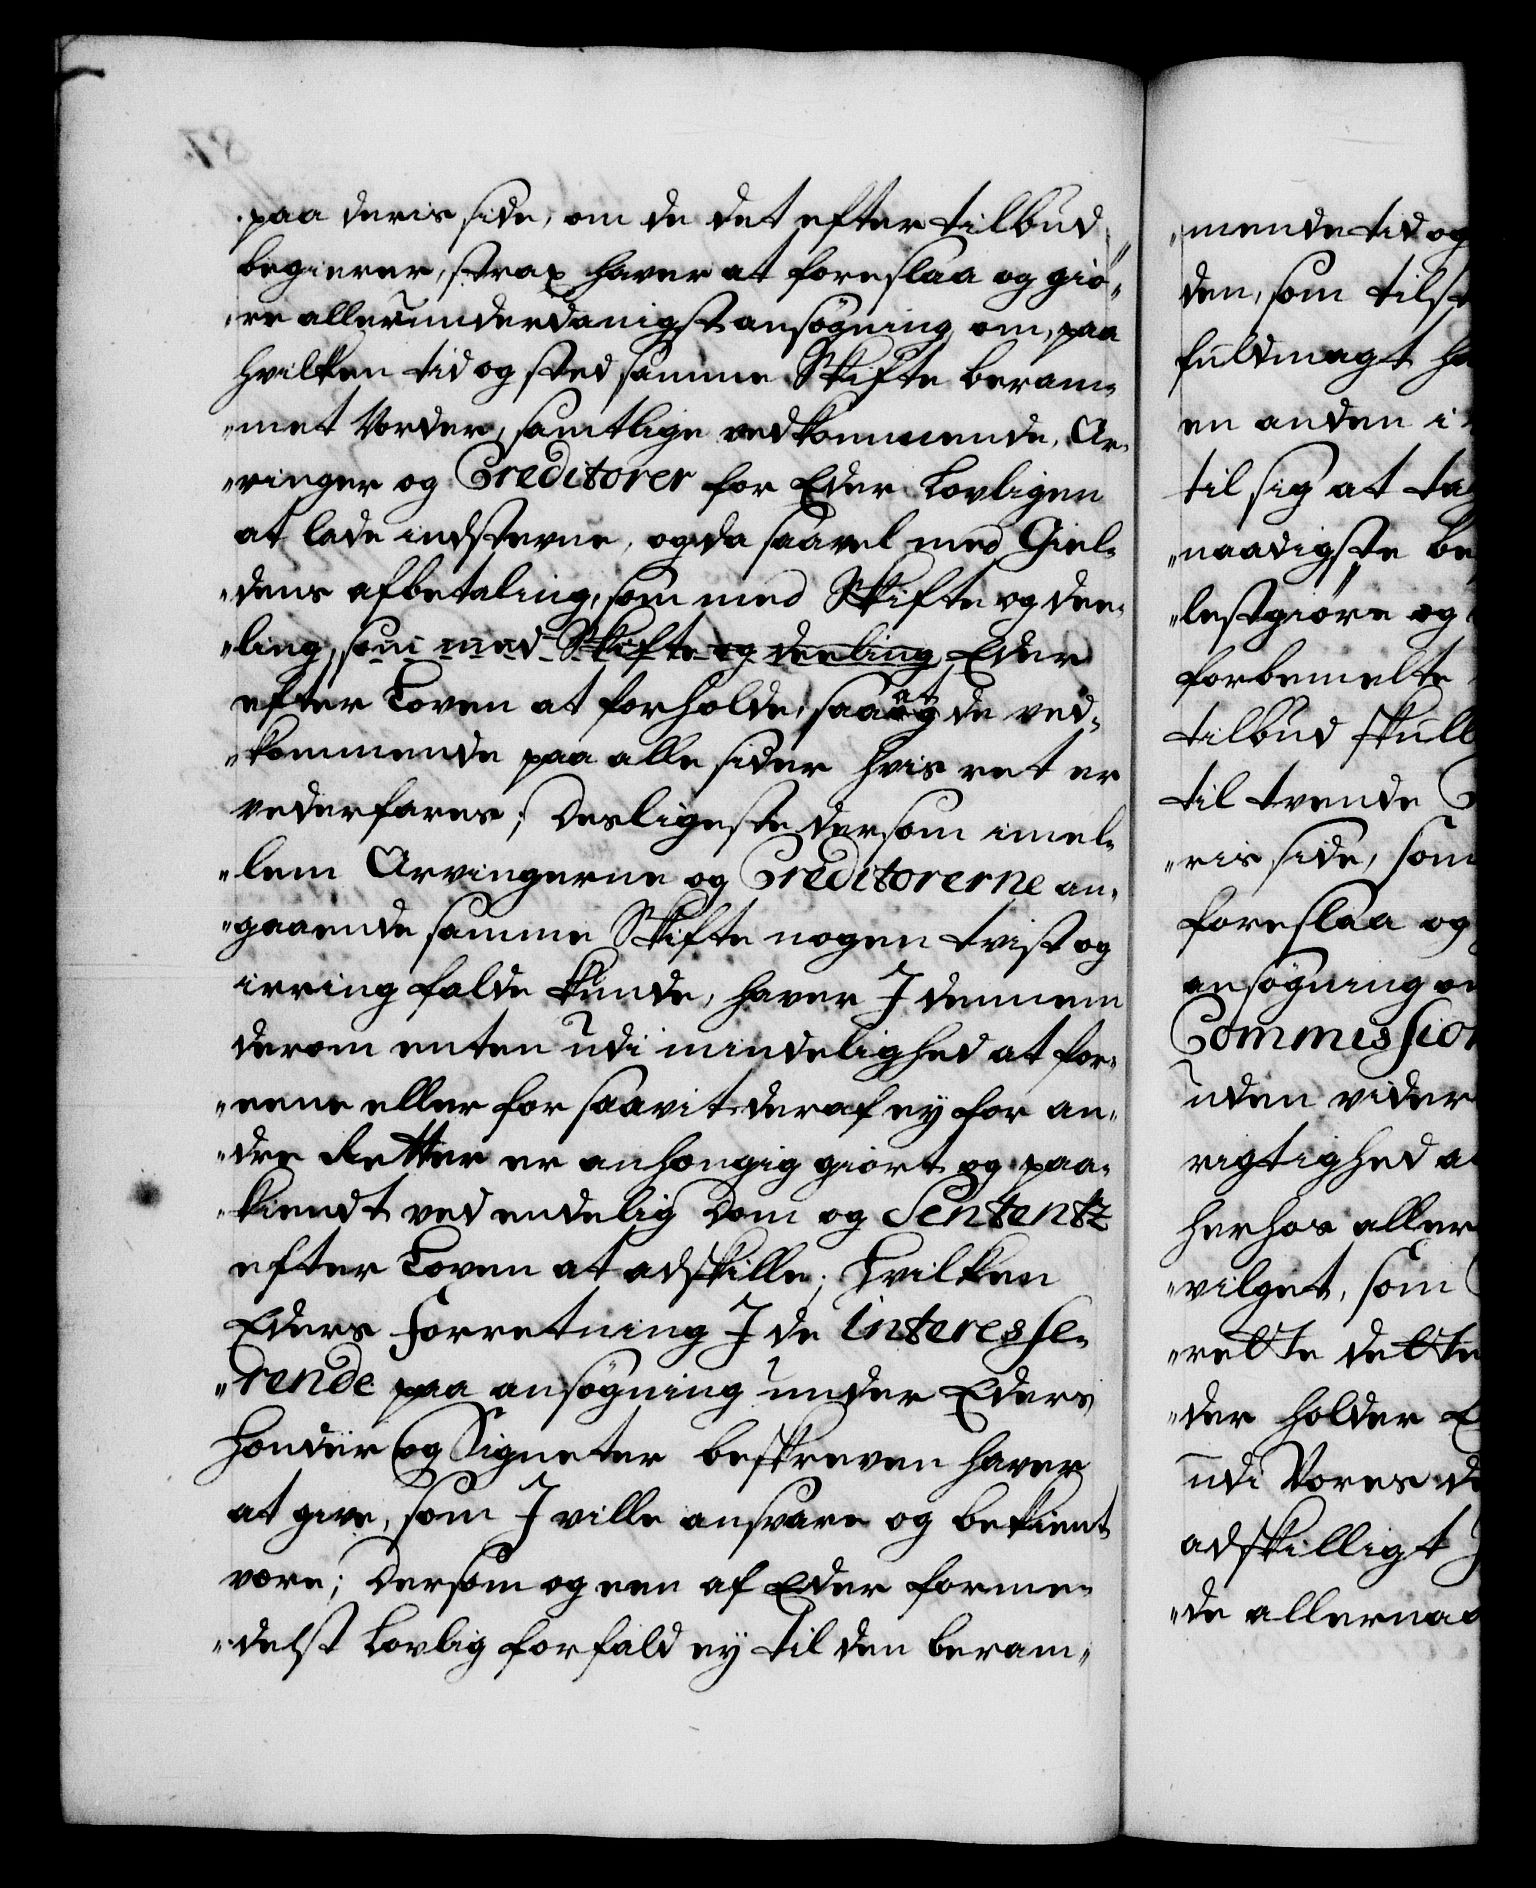 paa deris side, om de det efter tilbud
begierer, strax haver at foreslaa og giö„
„re allerunderdanigst ansögning om, paa
hvilken tid og sted samme Skifte beram„
„met vorder, samtlige vedkommende, Ar„
„vinger og Creditorer for Eder Lovligen
at lade indstevne, og da saavel med Giel„
„dens afbetaling, som med Skifte og dee„
„ling, som med Skifte og deeling Eder
efter Loven at forholde, saa at de ved„
„kommende paa alle sider hvis ret er
vederfares; Desligeste dersom imel„
„lem Arvingerne og Creditorerne an„
„gaaende samme Skifte nogen tvist og
irring falde kunde, haver I dennem
derom enten udi mindelighed at for„
„eene eller for saavit deraf ey for an„
„dre Retter er anhængig giort og paa„
„kiendt ved endelig Dom og Sententz
efter Loven at adskille; Hvilken
Eders Forretning I de Interesse„
„rende paa ansögning under Eders
Hænder og Signeter beskreven haver
at give, som I ville ansvare og bekient
være; Dersom og een af Eder forme„
„delst Lovlig forfald ey til den beram„
„mende tid og
den, som tilst
fuldmagt ha
en anden i
til sig at ta
„naadigste be
„lestgiöre og
forbemelte
tilbud skull
til tvende
„ris side, som
foreslaa og
ansögning o
Commission
uden vider
rigtighed a
herhos aller
„vilget, som
„rette dette
„der holder E
udi Vores d
adskilligt
„de allernaa